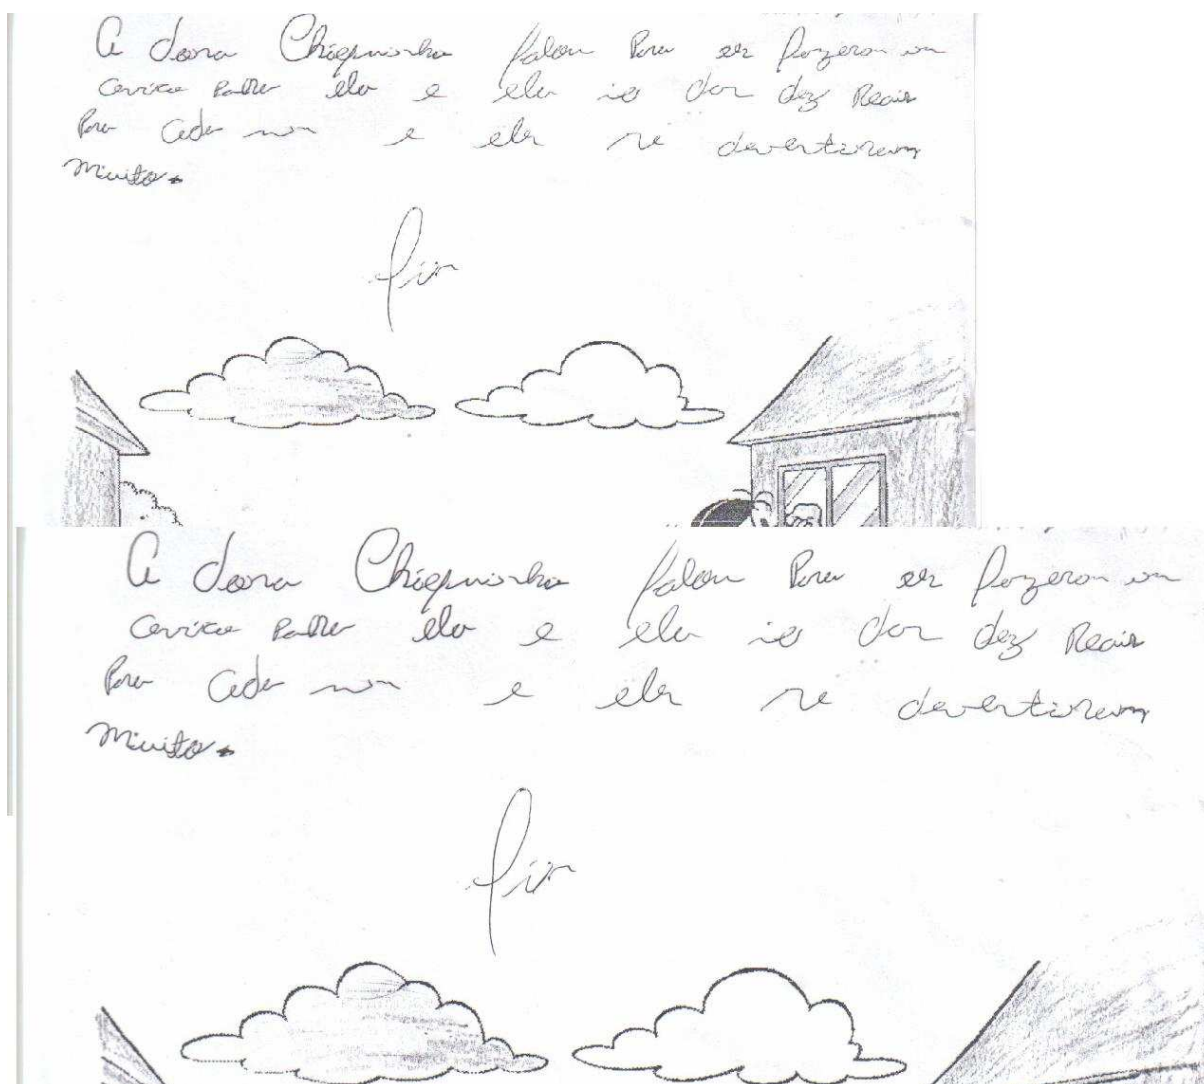 A dona Chiquinha falou Para es fazerem um
cerviso Para ela e ela ia dar dez Reais
Para cada um e eles se devertiram
Muito.
fim
A dona Chiquinha falou Para es fazerem um
cerviso Para ela e ela ia dar dez Reais
Para cada um e eles se devertiram
Muito.
fim